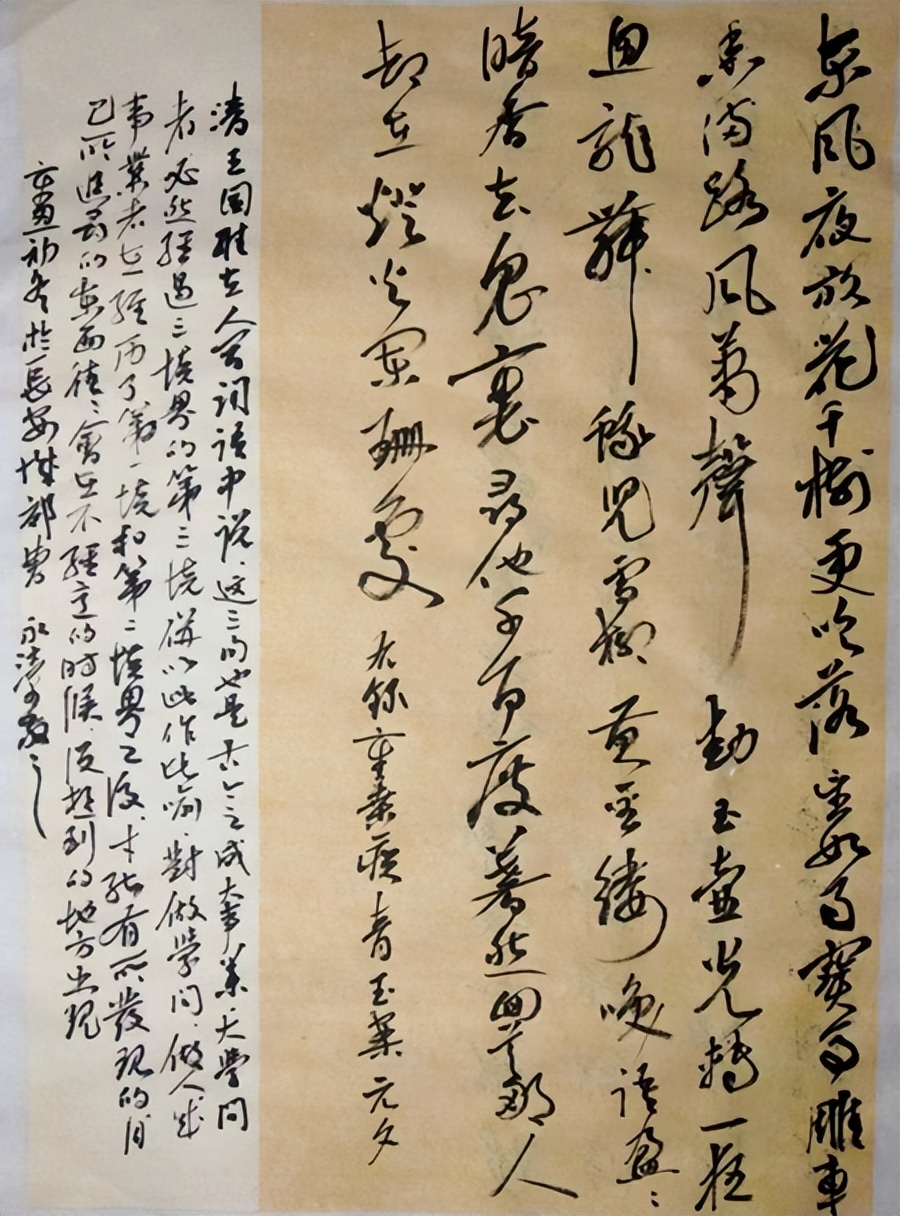 東風夜放花千樹更吹落星如雨寶馬雕車
香滿路風蕭聲動玉壺光轉一夜
魚龍舞蛾兒雪柳黃金縷咲語盈〻
暗香去衆裏尋他千百度驀然回首那人
却在燈火闌珊處 右錄辛棄疾青玉案元夕
清王國維在人間詞話中説、這三句也是古今之成大事業、大學問
者必然經過三境界的第三境併以此作比喻、對做學問、做人成
事業者在經历了第一境和第二境界之後、才能有所發現的自
己所追尋的東西往〻會在不經意的時候、沒想到的地方出現
辛丑初冬於長安